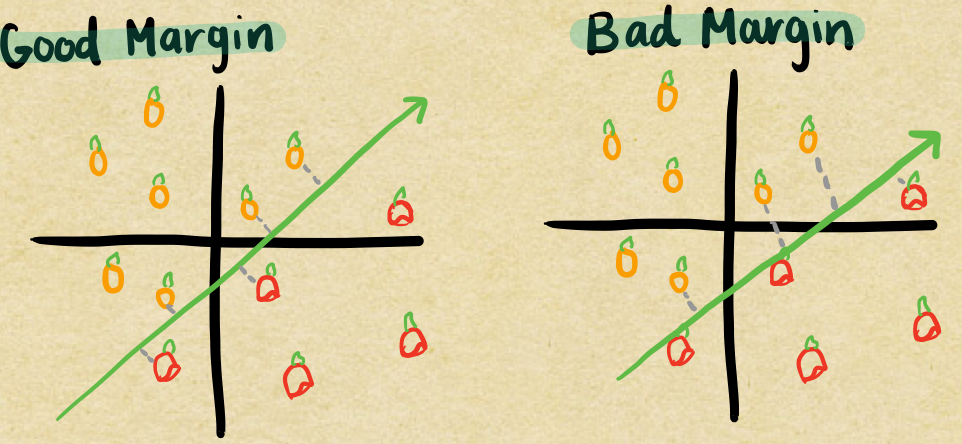 Good Margin
Bad Margin